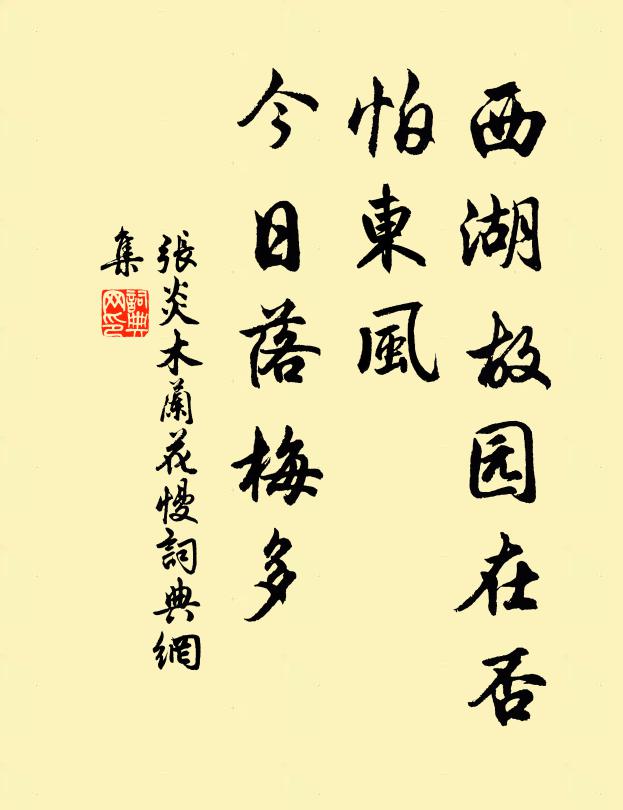 西湖故园在否
怕東風
今日落梅多
張炎木蘭花慢詞典網
集
詞典
网印